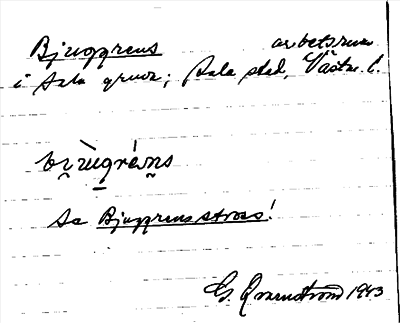 Bjuggrens arbetsrum
i Sala gruva; Sala stad, Västm. l.
bjùgréns
Se Bjuggrens stross!
G. Qvarnström 1943